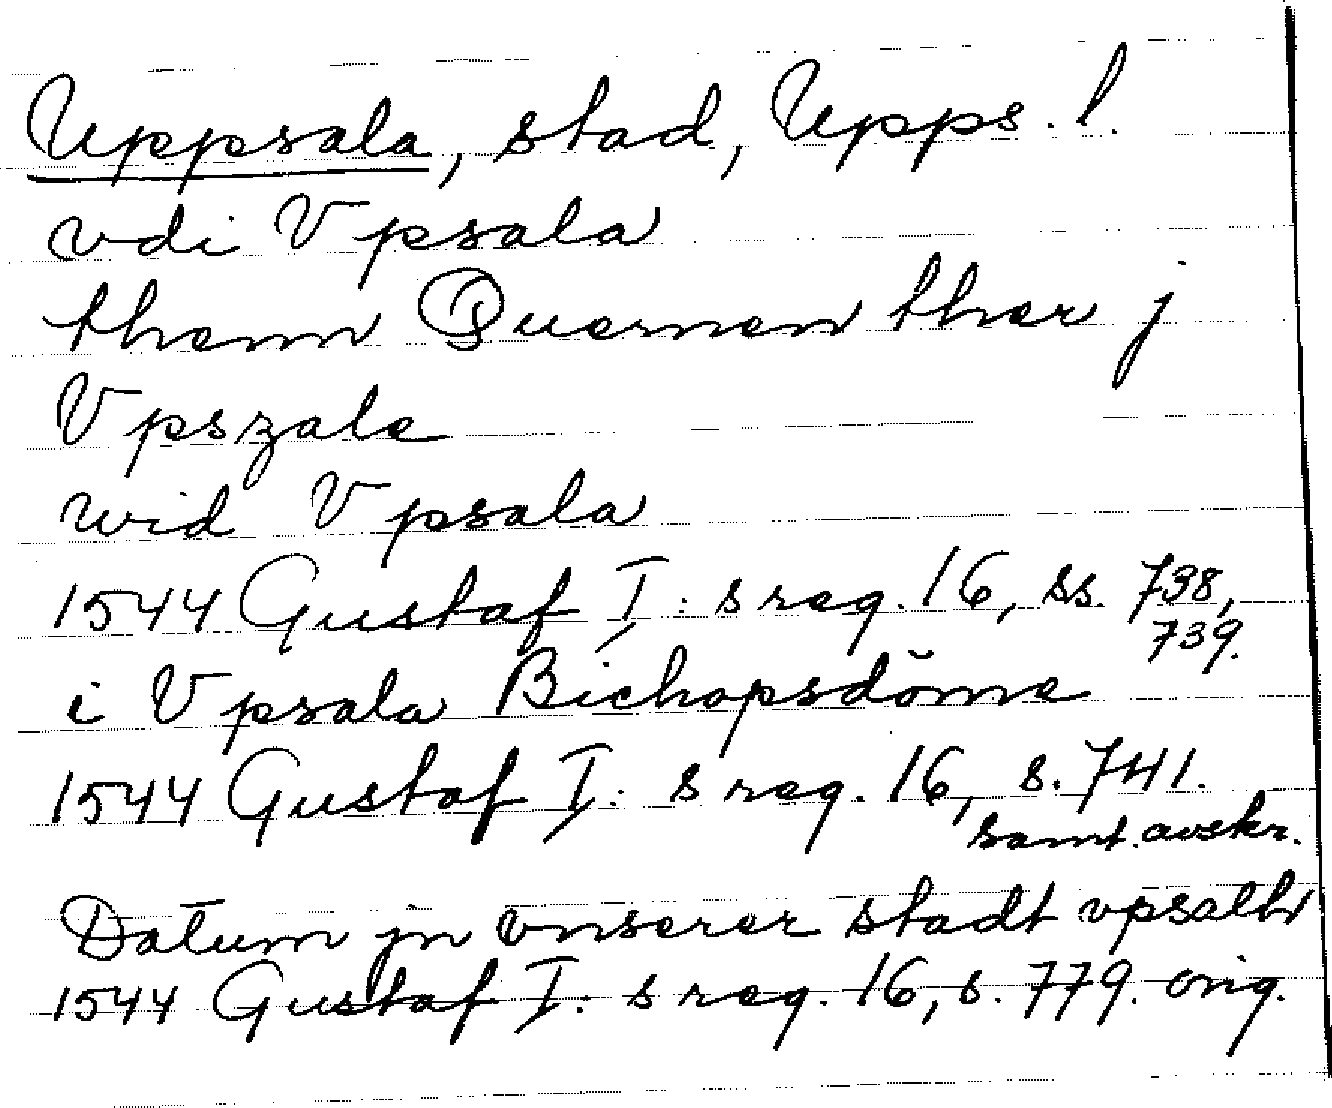 Uppsala, stad, Upps. l.
vdi Vpsala
thenn Quernen ther j
Vpszale
wid Vpsala
1544 Gustaf I: s reg. 16, ss. 738,
739.
i Vpsala Bichopsdöme
1544 Gustaf I: s reg. 16, s. 741.
samt. avskr.
Datum jn vnserer stadt vpsalh
1544 Gustaf I: s reg. 16, s. 779. orig.